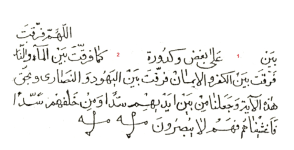 اللهم فرقت
بين ١ على بغض وكدورة ٢ كما فرقت بين الماء والنار
فرقت بين الكفر والايمان فرقت بين اليهود والنصارى وبحق
هذه الاية وجعلنا من بين ايديهم سدا ومن خلفهم سدا
فاغشيناهم فهم لا يبصرون